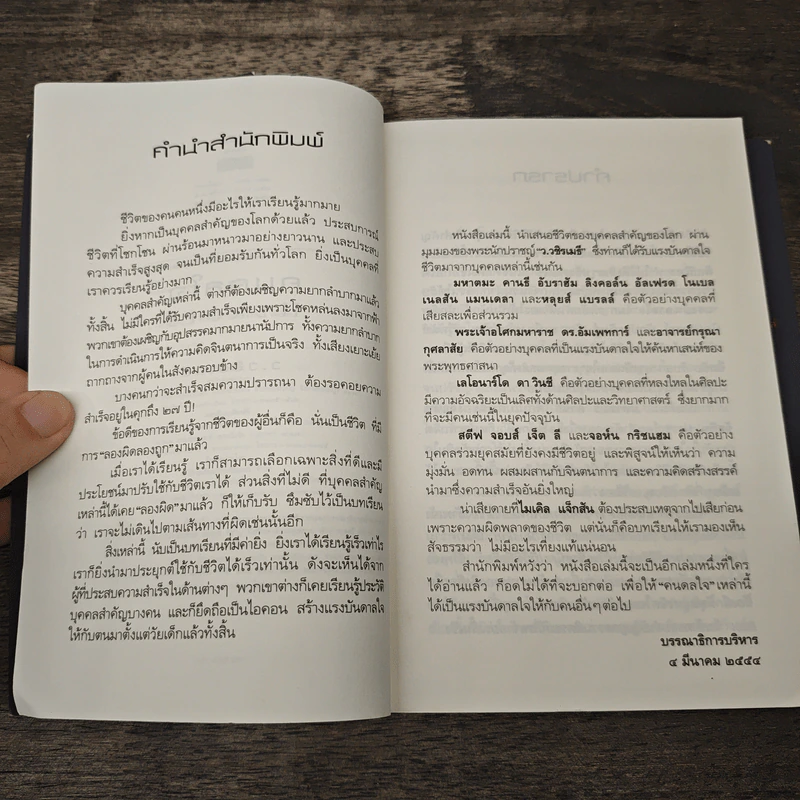 คำนำสำนักพิมพ์
ชีวิตของคนคนหนึ่งมีอะไรให้เราเรียนรู้มากมาย
ยิ่งหากเป็นบุคคลสำคัญของโลกด้วยแล้ว ประสบการณ์
ชีวิตที่โชกโชน ผ่านร้อนมาหนาวมาอย่างยาวนาน และประสบ
ความสำเร็จสูงสุด จนเป็นที่ยอมรับกันทั่วโลก ยิ่งเป็นบุคคลที่
เราควรเรียนรู้อย่างมาก
บุคคลสำคัญเหล่านี้ ต่างก็ต้องเผชิญความยากลำบากมาแล้ว
ทั้งสิ้น ไม่มีใครที่ได้รับความสำเร็จเพียงเพราะโชคหล่นลงมาจากฟ้า
พวกเขาต้องเผชิญกับอุปสรรคมากมายนานัปการ ทั้งความยากลำบาก
ในการดำเนินการให้ความคิดจินตนาการเป็นจริง ทั้งเสียงเยาะเย้ย
ถากถางจากผู้คนในสังคมรอบข้าง
บางคนกว่าจะสำเร็จสมความปรารถนา ต้องรอคอยความ
สำเร็จอยู่ในคุกถึง ๒๗ ปี!
ข้อดีของการเรียนรู้จากชีวิตของผู้อื่นก็คือ นั่นเป็นชีวิต ที่มี
การ “ลองผิดลองถูก” มาแล้ว
เมื่อเราได้เรียนรู้ เราก็สามารถเลือกเฉพาะสิ่งที่ดีและมี
ประโยชน์มาปรับใช้กับชีวิตเราได้ ส่วนสิ่งที่ไม่ดี ที่บุคคลสำคัญ
เหล่านี้ได้เคย “ลองผิด” มาแล้ว ก็ให้เก็บรับ ซึมซับไว้เป็นบทเรียน
ว่า เราจะไม่เดินไปตามเส้นทางที่ผิดเช่นนั้นอีก
สิ่งเหล่านี้ นับเป็นบทเรียนที่มีค่ายิ่ง ยิ่งเราได้เรียนรู้เร็วเท่าไร
เราก็ยิ่งนำมาประยุกต์ใช้กับชีวิตได้เร็วเท่านั้น ดังจะเห็นได้จาก
ผู้ที่ประสบความสำเร็จในด้านต่างๆ พวกเขาต่างก็เคยเรียนรู้ประวัติ
บุคคลสำคัญบางคน และก็ยึดถือเป็นไอคอน สร้างแรงบันดาลใจ
ให้กับตนมาตั้งแต่วัยเด็กแล้วทั้งสิ้น
หนังสือเล่มนี้ นำเสนอชีวิตของบุคคลสำคัญของโลก ผ่าน
มุมมองของพระนักปราชญ์ “ว.วชิรเมธี” ซึ่งท่านก็ได้รับแรงบันดาลใจ
ชีวิตมาจากบุคคลเหล่านี้เช่นกัน
มหาตมะ คานธี อับราฮัม ลิงคอล์น อัลเฟรด โนเบล
เนลสัน แมนเดลา และหลุยส์ เบรลล์ คือตัวอย่างบุคคลที่
เสียสละเพื่อส่วนรวม
พระเจ้าอโศกมหาราช ดร.อัมเพทการ์ และอาจารย์กรุณา
กุศลาสัย คือตัวอย่างบุคคลที่เป็นแรงบันดาลใจให้ค้นหาเสน่ห์ของ
พระพุทธศาสนา
เลโอนาร์โด ดา วินชี คือตัวอย่างบุคคลที่หลงใหลในศิลปะ
มีความอัจฉริยะเป็นเลิศทั้งด้านศิลปะและวิทยาศาสตร์ ซึ่งยากมาก
ที่จะมีคนเช่นนี้ในยุคปัจจุบัน
สตีฟ จอบส์ เจ็ต ลี และจอห์น กริชแฮม คือตัวอย่าง
บุคคลร่วมยุคสมัยที่ยังคงมีชีวิตอยู่ และพิสูจน์ให้เห็นว่า ความ
มุ่งมั่น อดทน ผสมผสานกับจินตนาการ และความคิดสร้างสรรค์
นำมาซึ่งความสำเร็จอันยิ่งใหญ่
น่าเสียดายที่ไมเคิล แจ็กสัน ต้องประสบเหตุจากไปเสียก่อน
เพราะความผิดพลาดของชีวิต แต่นั่นก็คือบทเรียนให้เรามองเห็น
สัจธรรมว่า ไม่มีอะไรเที่ยงแท้แน่นอน
สำนักพิมพ์หวังว่า หนังสือเล่มนี้จะเป็นอีกเล่มหนึ่งที่ใคร
ได้อ่านแล้ว ก็อดไม่ได้ที่จะบอกต่อ เพื่อให้ “คนดลใจ” เหล่านี้
ได้เป็นแรงบันดาลใจให้กับคนอื่นๆ ต่อไป
บรรณาธิการบริหาร
๔ มีนาคม ๒๕๕๔